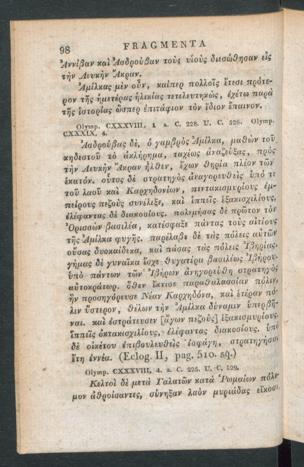 98 FRAGMENTA
Ἀννίβαν καὶ Ἀσδρούβαν τοὺς υἱοὺς διεσώθησαν εἰς
τὴν Λευκὴν Ἄκραν.
Ἀμίλκας μὲν οὖν, καίπερ πολλοῖς ἔτεσι πρότε-
ρον τῆς ἡμετέρας ἡλικίας τετελευτηκὼς, ἐχέτω παρὰ
τῆς ἱστορίας ὥσπερ ἐπιτάφιον τὸν ἴδιον ἔπαινον.
Olymp. CXXXVIII, 1 a. C. 228. U. C. 526. Olymp.
CXXXIX, 4.
Ἀσδρούβας δὲ, ὁ γαμβρὸς Ἀμίλκα, μαθὼν τοῦ
κηδεστοῦ τὸ ἀκλήρημα, ταχίως ἀναζεύξας, πρὸς
τὴν Λευκὴν Ἄκραν ἦλθεν, ἔχων θηρία πλίον τῶν
ἑκατόν. οὗτος δὲ στρατηγὸς ἀναγορευθεὶς ὑπό τε
τοῦ λαοῦ καὶ Καρχηδονίων, πεντακισμυρίους ἐμ-
πείρους πεζοὺς συνέλεξε, καὶ ἱππεῖς ἑξακισχιλίους,
ἐλέφαντας δὲ διακοσίους. πολεμήσας δὲ πρῶτον τὸν
Ὀρισσῶν βασιλέα, κατέσφαξε πάντας τοὺς αἰτίους
τῆς Ἀμίλκα φυγῆς. παρέλαβε δὲ τὰς πόλεις αὐτῶν
οὔσας δυοκαίδεκα, καὶ πάσας τὰς πόλεις Ἰβηρίας.
γήμας δὲ γυναῖκα θυγατέρα βασιλέως Ἰβηρος,
ὑπὸ πάντων τῶν Ἰβήρων ἀνηγορεύθη στρατηγὸς
αὐτοκράτωρ. ὅθεν ἔκτισε παραθαλασσίαν πόλιν,
ἣν προσηγόρευσε Νέαν Καρχηδόνα, καὶ ἑτέραν πό-
λιν ὕστερον, θέλων τὴν Ἀμίλκα δύναμιν ὑπερβῆ-
ναι. καὶ ἐστράτευσεν [ἄγων πεζοὺς] ἑξακισμυρίους,
ἱππεῖς ὀκτακισχιλίους, ἐλέφαντας διακοσίους. ὑπὸ
δὲ οἰκέτου ἐπιβουλευθεὶς ἐσφάγη, στρατηγήσας
ἔτη ἐννέα. (Eclog. II, pag. 510. sq.)
Olymp. CXXXVIII, 4. a. C. 225. U. C. 529.
Κελτοὶ δὲ μετὰ Γαλατῶν κατὰ Ῥωμαίων πόλε-
μον ἀθροίσαντες, συνῆξαν λαὸν μυριάδας εἴκοσι.